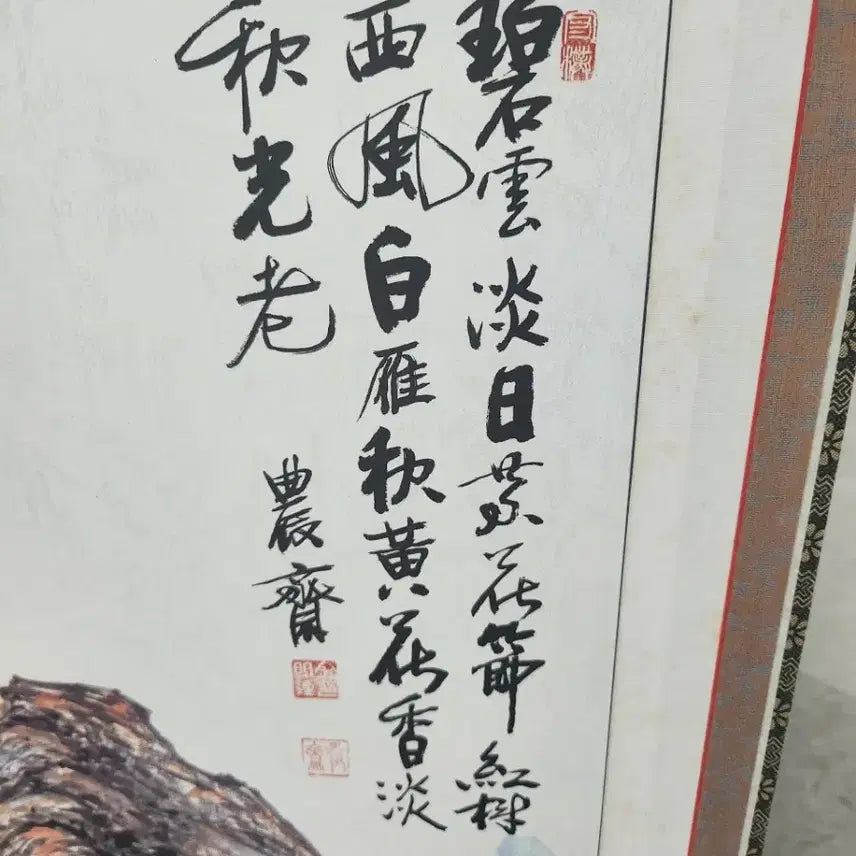 碧雲淡日黃花節紅樹
西風白雁秋黃花香淡
秋光老
農齋